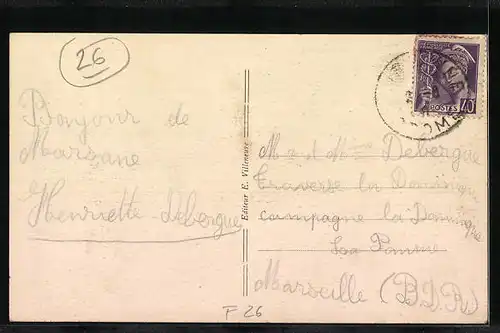 26
Bonjour de
Marsane
Henriette Debergue
Editeur E. Villeneuve
POSTES
40
DROME
M et Mme Debergue
traverse la Dominique
campagne la Dominique
La Pomme
Marseille (B.D.R)
F 26